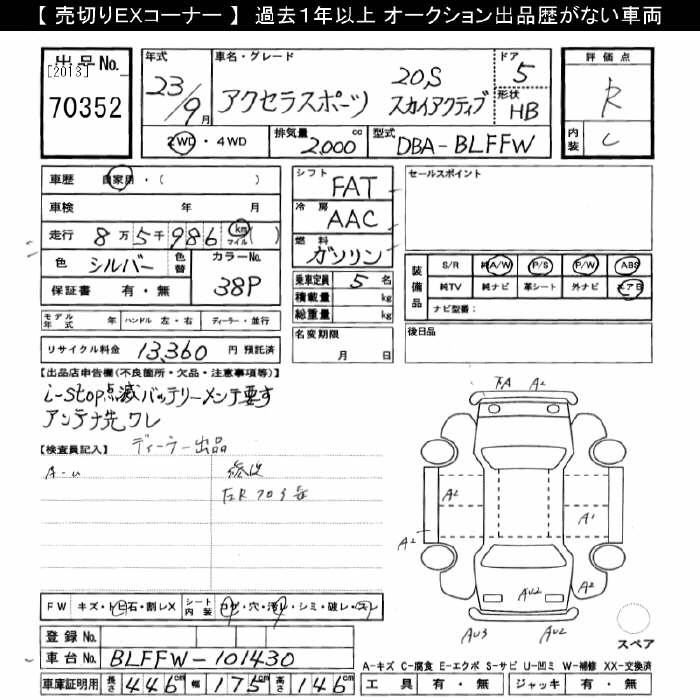 【 売切りEXコーナー 】 過去1年以上 オークション出品歴がない車両
出品No.
[2013]
70352
年式
23/9月
車名・グレード
アクセラスポーツ
20S
スカイアクティブ
ドア
5
形状
HB
評価点
R
内装
C
2WD・4WD
排気量
2,000 cc
型式
DBA-BLFFW
車歴 自家用・( )
車検 年 月
走行 8万5千986 km マイル ( )
色 シルバー 色替 カラーNo. 38P
保証書 有・無
モデル年式 年 ハンドル 左・右 ディーラー・並行
リサイクル料金 13,360 円 預託済
シフト FAT
冷房 AAC
燃料 ガソリン
乗車定員 5 名
積載量 kg
総重量 kg
名変期限
月 日
セールスポイント
装備品
S/R 純A/W P/S P/W ABS
純TV 純ナビ 革シート 外ナビ エアB
ナビ型番:
後日品
【出品店申告欄(不良箇所・欠品・注意事項等)】
i-stop点滅バッテリーメンテ要す
アンテナ先ワレ
【検査員記入】 ディーラー出品
修復
下A A2
A2
A2
A1
A2
AU2
AU3 AU2
スペア
FW キズ・トビ石・割レX シート内装 コゲ・穴・汚レ・シミ・破レ・スレ
登録No.
車台No. BLFFW-101430
車庫証明用 長さ 446cm 幅 175cm 高さ 146cm
A-キズ C-腐食 E-エクボ S-サビ U-凹ミ W-補修 XX-交換済
工具 有・無 ジャッキ 有・無